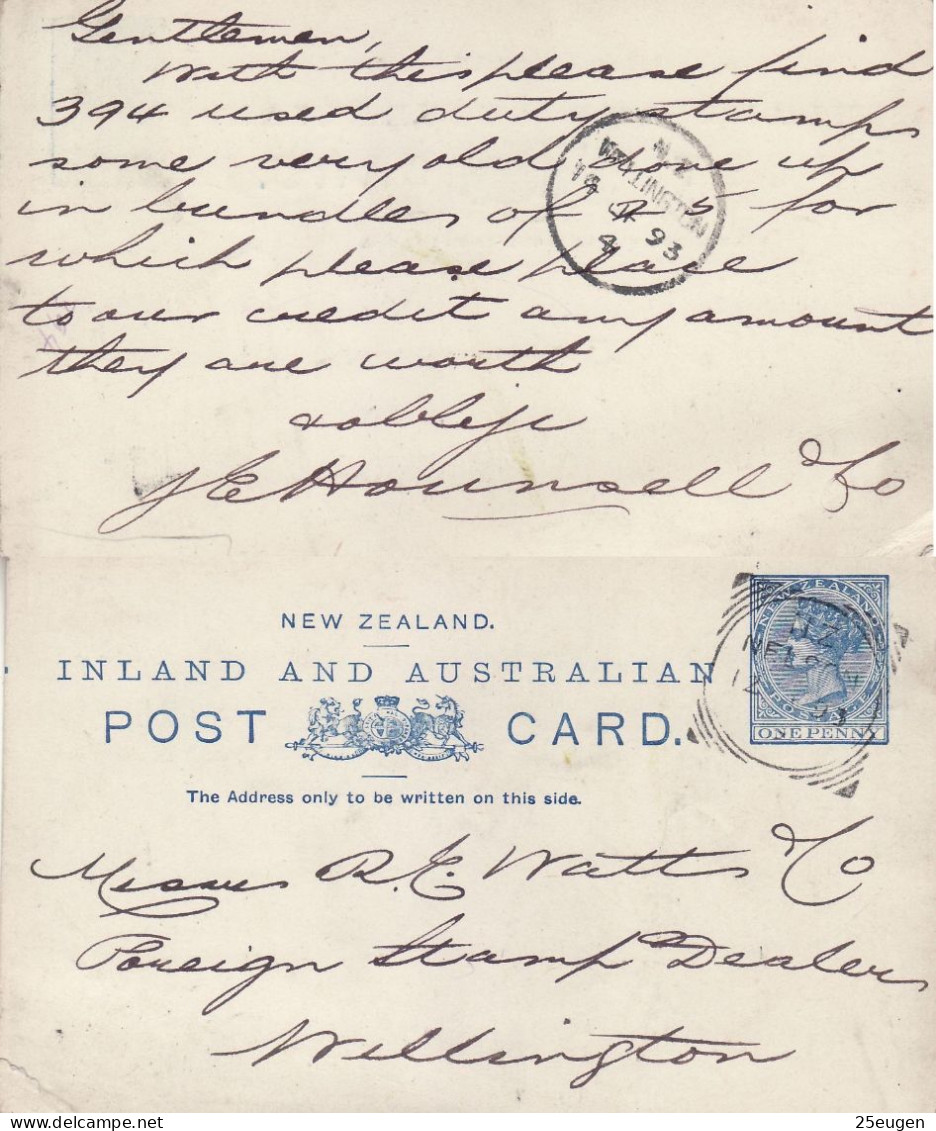 Gentlemen,
With this please find
394 used duty stamps
some very old done up
in bundles of for
which please place
to our credit any amount
they are worth
& oblige
J E Hounsell & Co
N.Z.
WELLINGTON
93
4
NEW ZEALAND.
INLAND AND AUSTRALIAN
POST CARD.
The Address only to be written on this side.
NEW ZEALAND
POSTAGE
ONE PENNY
N.Z
NELSON
93
Messrs R. E. Watts & Co
Foreign Stamp Dealers
Wellington
25eugen